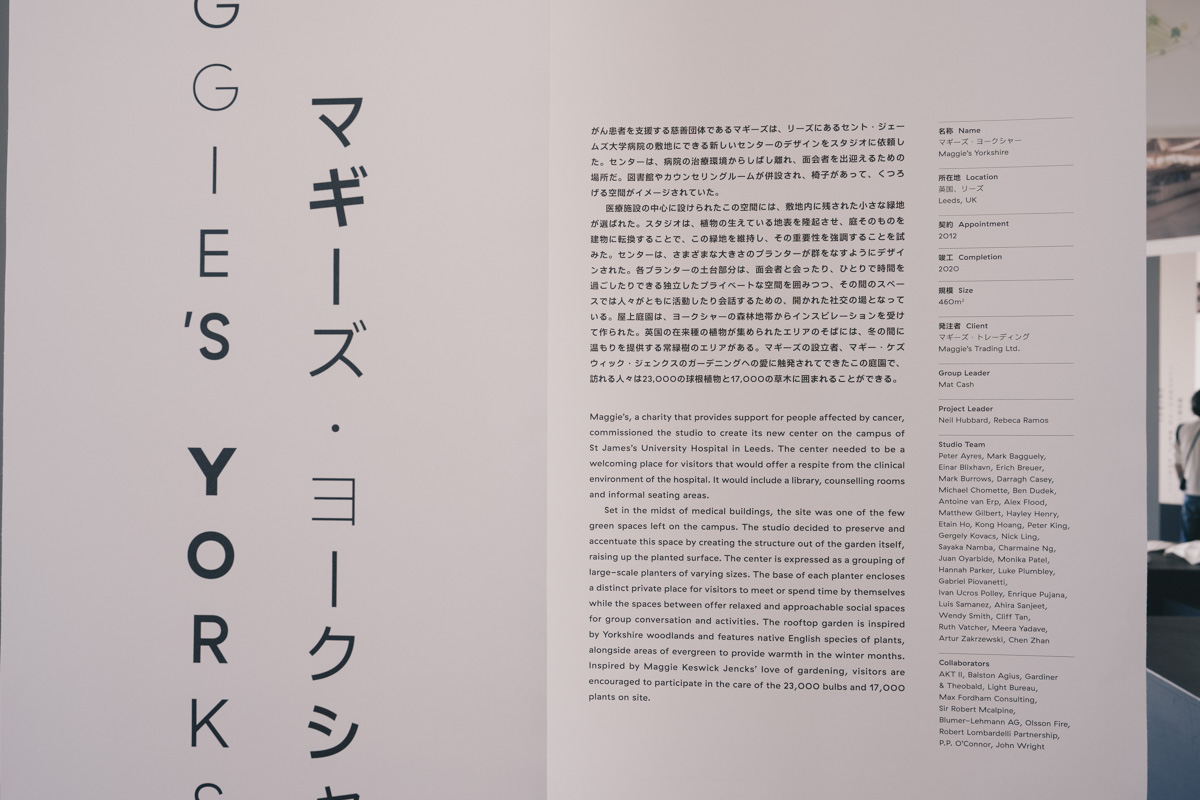 G
G
I
E
'S
Y
O
R
K
S
マギーズ・ヨークシャ
がん患者を支援する慈善団体であるマギーズは、リーズにあるセント・ジェー
ムズ大学病院の敷地にできる新しいセンターのデザインをスタジオに依頼し
た。センターは、病院の治療環境からしばし離れ、面会者を出迎えるための
場所だ。図書館やカウンセリングルームが併設され、椅子があって、くつろ
げる空間がイメージされていた。
医療施設の中心に設けられたこの空間には、敷地内に残された小さな緑地
が選ばれた。スタジオは、植物の生えている地表を隆起させ、庭そのものを
建物に転換することで、この緑地を維持し、その重要性を強調することを試
みた。センターは、さまざまな大きさのプランターが群をなすようにデザイ
ンされた。各プランターの土台部分は、面会者と会ったり、ひとりで時間を
過ごしたりできる独立したプライベートな空間を囲みつつ、その間のスペー
スでは人々がともに活動したり会話するための、開かれた社交の場となって
いる。屋上庭園は、ヨークシャーの森林地帯からインスピレーションを受け
て作られた。英国の在来種の植物が集められたエリアのそばには、冬の間に
温もりを提供する常緑樹のエリアがある。マギーズの設立者、マギー・ケズ
ウィック・ジェンクスのガーデニングへの愛に触発されてできたこの庭園で、
訪れる人々は23,000の球根植物と17,000の草木に囲まれることができる。
Maggie's, a charity that provides support for people affected by cancer,
commissioned the studio to create its new center on the campus of
St James's University Hospital in Leeds. The center needed to be a
welcoming place for visitors that would offer a respite from the clinical
environment of the hospital. It would include a library, counselling rooms
and informal seating areas.
Set in the midst of medical buildings, the site was one of the few
green spaces left on the campus. The studio decided to preserve and
accentuate this space by creating the structure out of the garden itself,
raising up the planted surface. The center is expressed as a grouping of
large-scale planters of varying sizes. The base of each planter encloses
a distinct private place for visitors to meet or spend time by themselves
while the spaces between offer relaxed and approachable social spaces
for group conversation and activities. The rooftop garden is inspired
by Yorkshire woodlands and features native English species of plants,
alongside areas of evergreen to provide warmth in the winter months.
Inspired by Maggie Keswick Jencks' love of gardening, visitors are
encouraged to participate in the care of the 23,000 bulbs and 17,000
plants on site.
名称 Name
マギーズ・ヨークシャー
Maggie's Yorkshire
所在地 Location
英国、リーズ
Leeds, UK
契約 Appointment
2012
竣工 Completion
2020
規模 Size
460m²
発注者 Client
マギーズ・トレーディング
Maggie's Trading Ltd.
Group Leader
Mat Cash
Project Leader
Neil Hubbard, Rebeca Ramos
Studio Team
Peter Ayres, Mark Bagguely,
Einar Blixhavn, Erich Breuer,
Mark Burrows, Darragh Casey,
Michael Chomette, Ben Dudek,
Antoine van Erp, Alex Flood,
Matthew Gilbert, Hayley Henry,
Etain Ho, Kong Hoang, Peter King,
Gergely Kovacs, Nick Ling,
Sayaka Namba, Charmaine Ng,
Juan Oyarbide, Monika Patel,
Hannah Parker, Luke Plumbley,
Gabriel Piovanetti,
Ivan Ucros Polley, Enrique Pujana,
Luis Samanez, Ahira Sanjeet,
Wendy Smith, Cliff Tan,
Ruth Vatcher, Meera Yadave,
Artur Zakrzewski, Chen Zhan
Collaborators
AKT II, Balston Agius, Gardiner
& Theobald, Light Bureau,
Max Fordham Consulting,
Sir Robert Mcalpine,
Blumer-Lehmann AG, Olsson Fire,
Robert Lombardelli Partnership,
P.P. O'Connor, John Wright